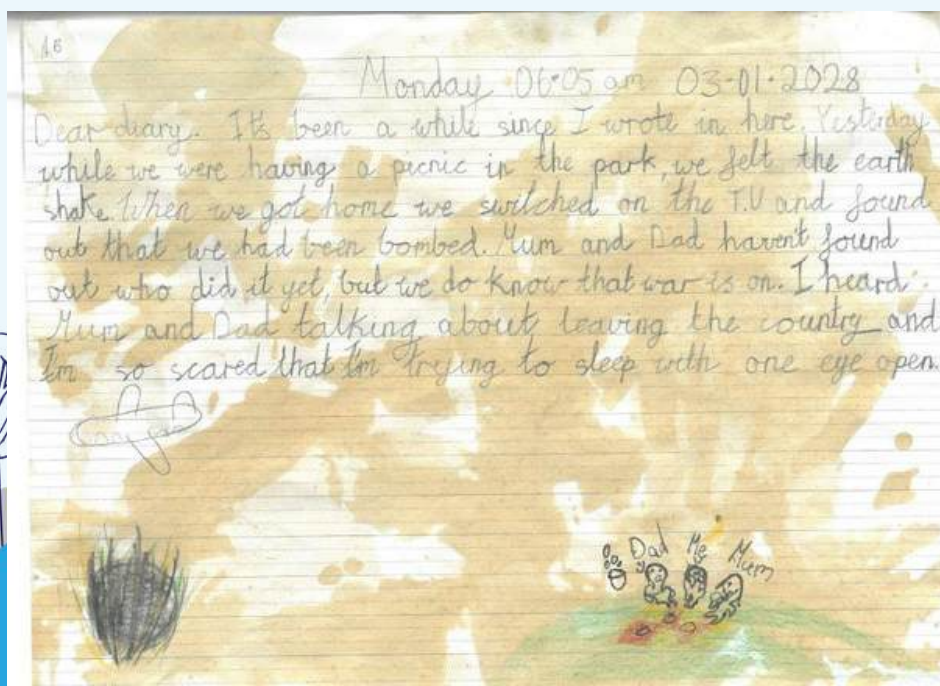 16
Monday 06:05 am 03-01-2028
Dear diary. It's been a while since I wrote in here. Yesterday
while we were having a picnic in the park, we felt the earth
shake. When we got home we switched on the T.V and found
out that we had been bombed. Mum and Dad haven't found
out who did it yet, but we do know that war is on. I heard
Mum and Dad talking about leaving the country and
I'm so scared that I'm trying to sleep with one eye open.
Dad Me Mum